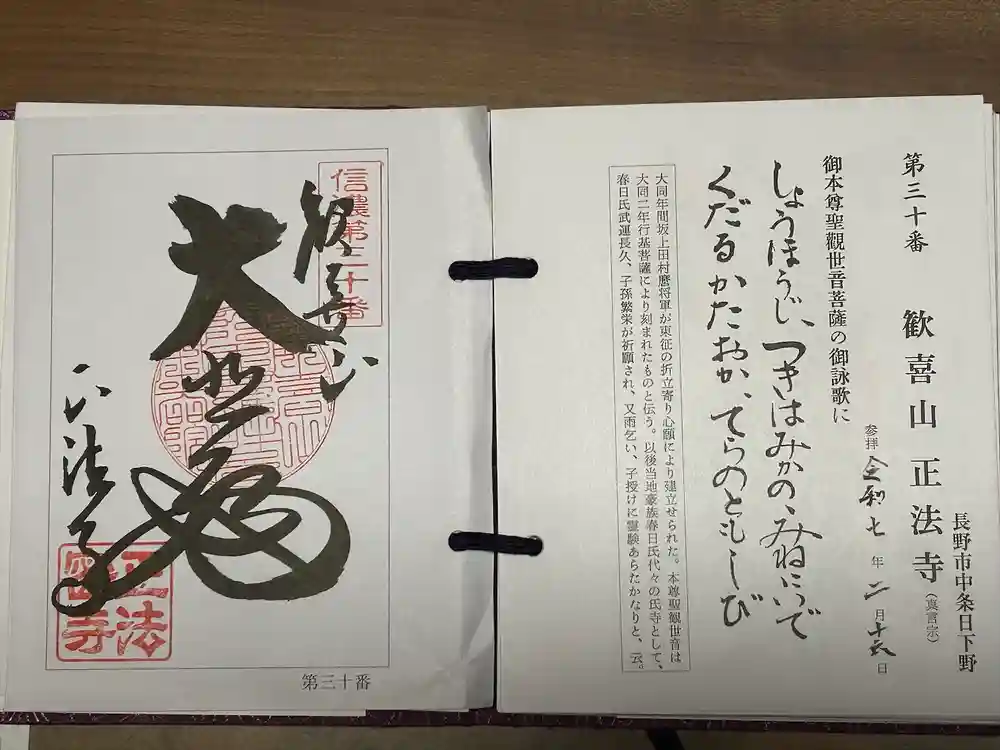 第三十番
歓喜山 正法寺(真言宗)
長野市中条日下野
参拝 令和七年二月十六日
御本尊聖觀世音菩薩の御詠歌に
しょうほうじ、つきはみかの、みねにいで
くだるかたおか、てらのともしび
大同年間坂上田村麿将軍が東征の折立寄り心願により建立せられた。本尊聖観世音は
大同二年行基菩薩により刻まれたものと伝う。以後当地豪族春日氏代々の氏寺として、
春日氏武運長久、子孫繁栄が祈願され、又雨乞い、子授けに霊験あらたかなりと、云。
信濃第三十番
歓喜山
大悲殿
正法寺
正法
寺
第三十番